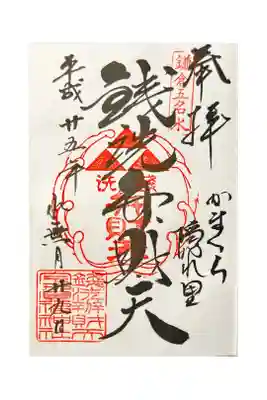 奉拝
かまくら
隠れ里
鎌倉五名水
銭洗弁財天
平成廿五年
水無月
廿九日